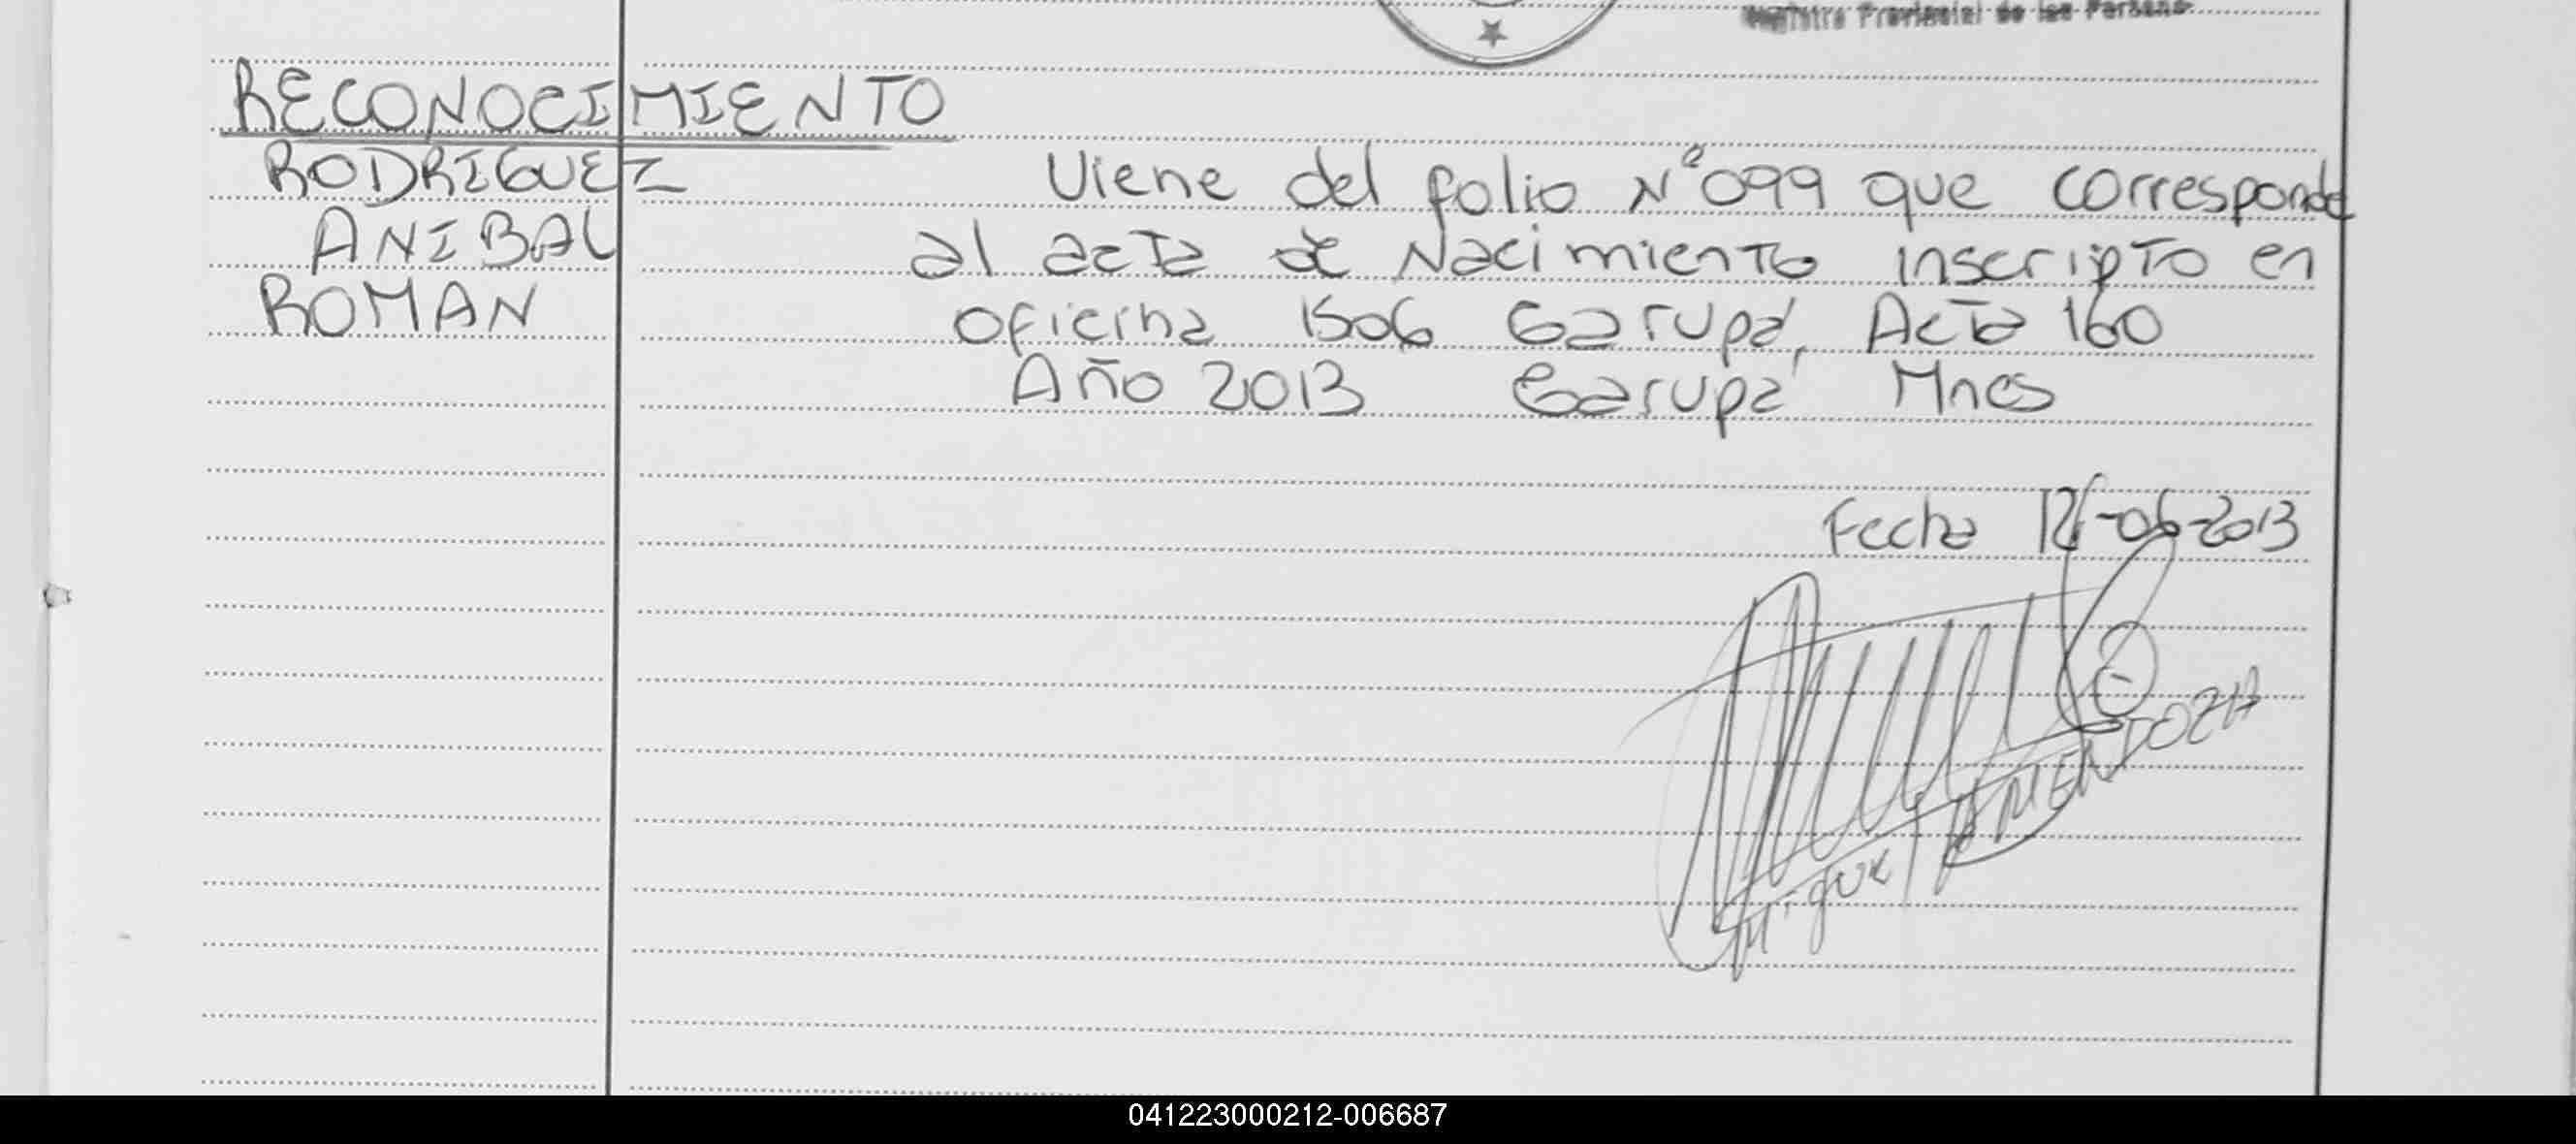 Registro Provincial de las Personas
RECONOCIMIENTO
RODRIGUEZ
ANIBAL
ROMAN
Viene del folio Nº 099 que corresponde
al acta de Nacimiento inscripto en
oficina 1506 Garupá, Acta 160
Año 2013 Garupá Mnes
Fecha 12-06-2013
Miguel
041223000212-006687